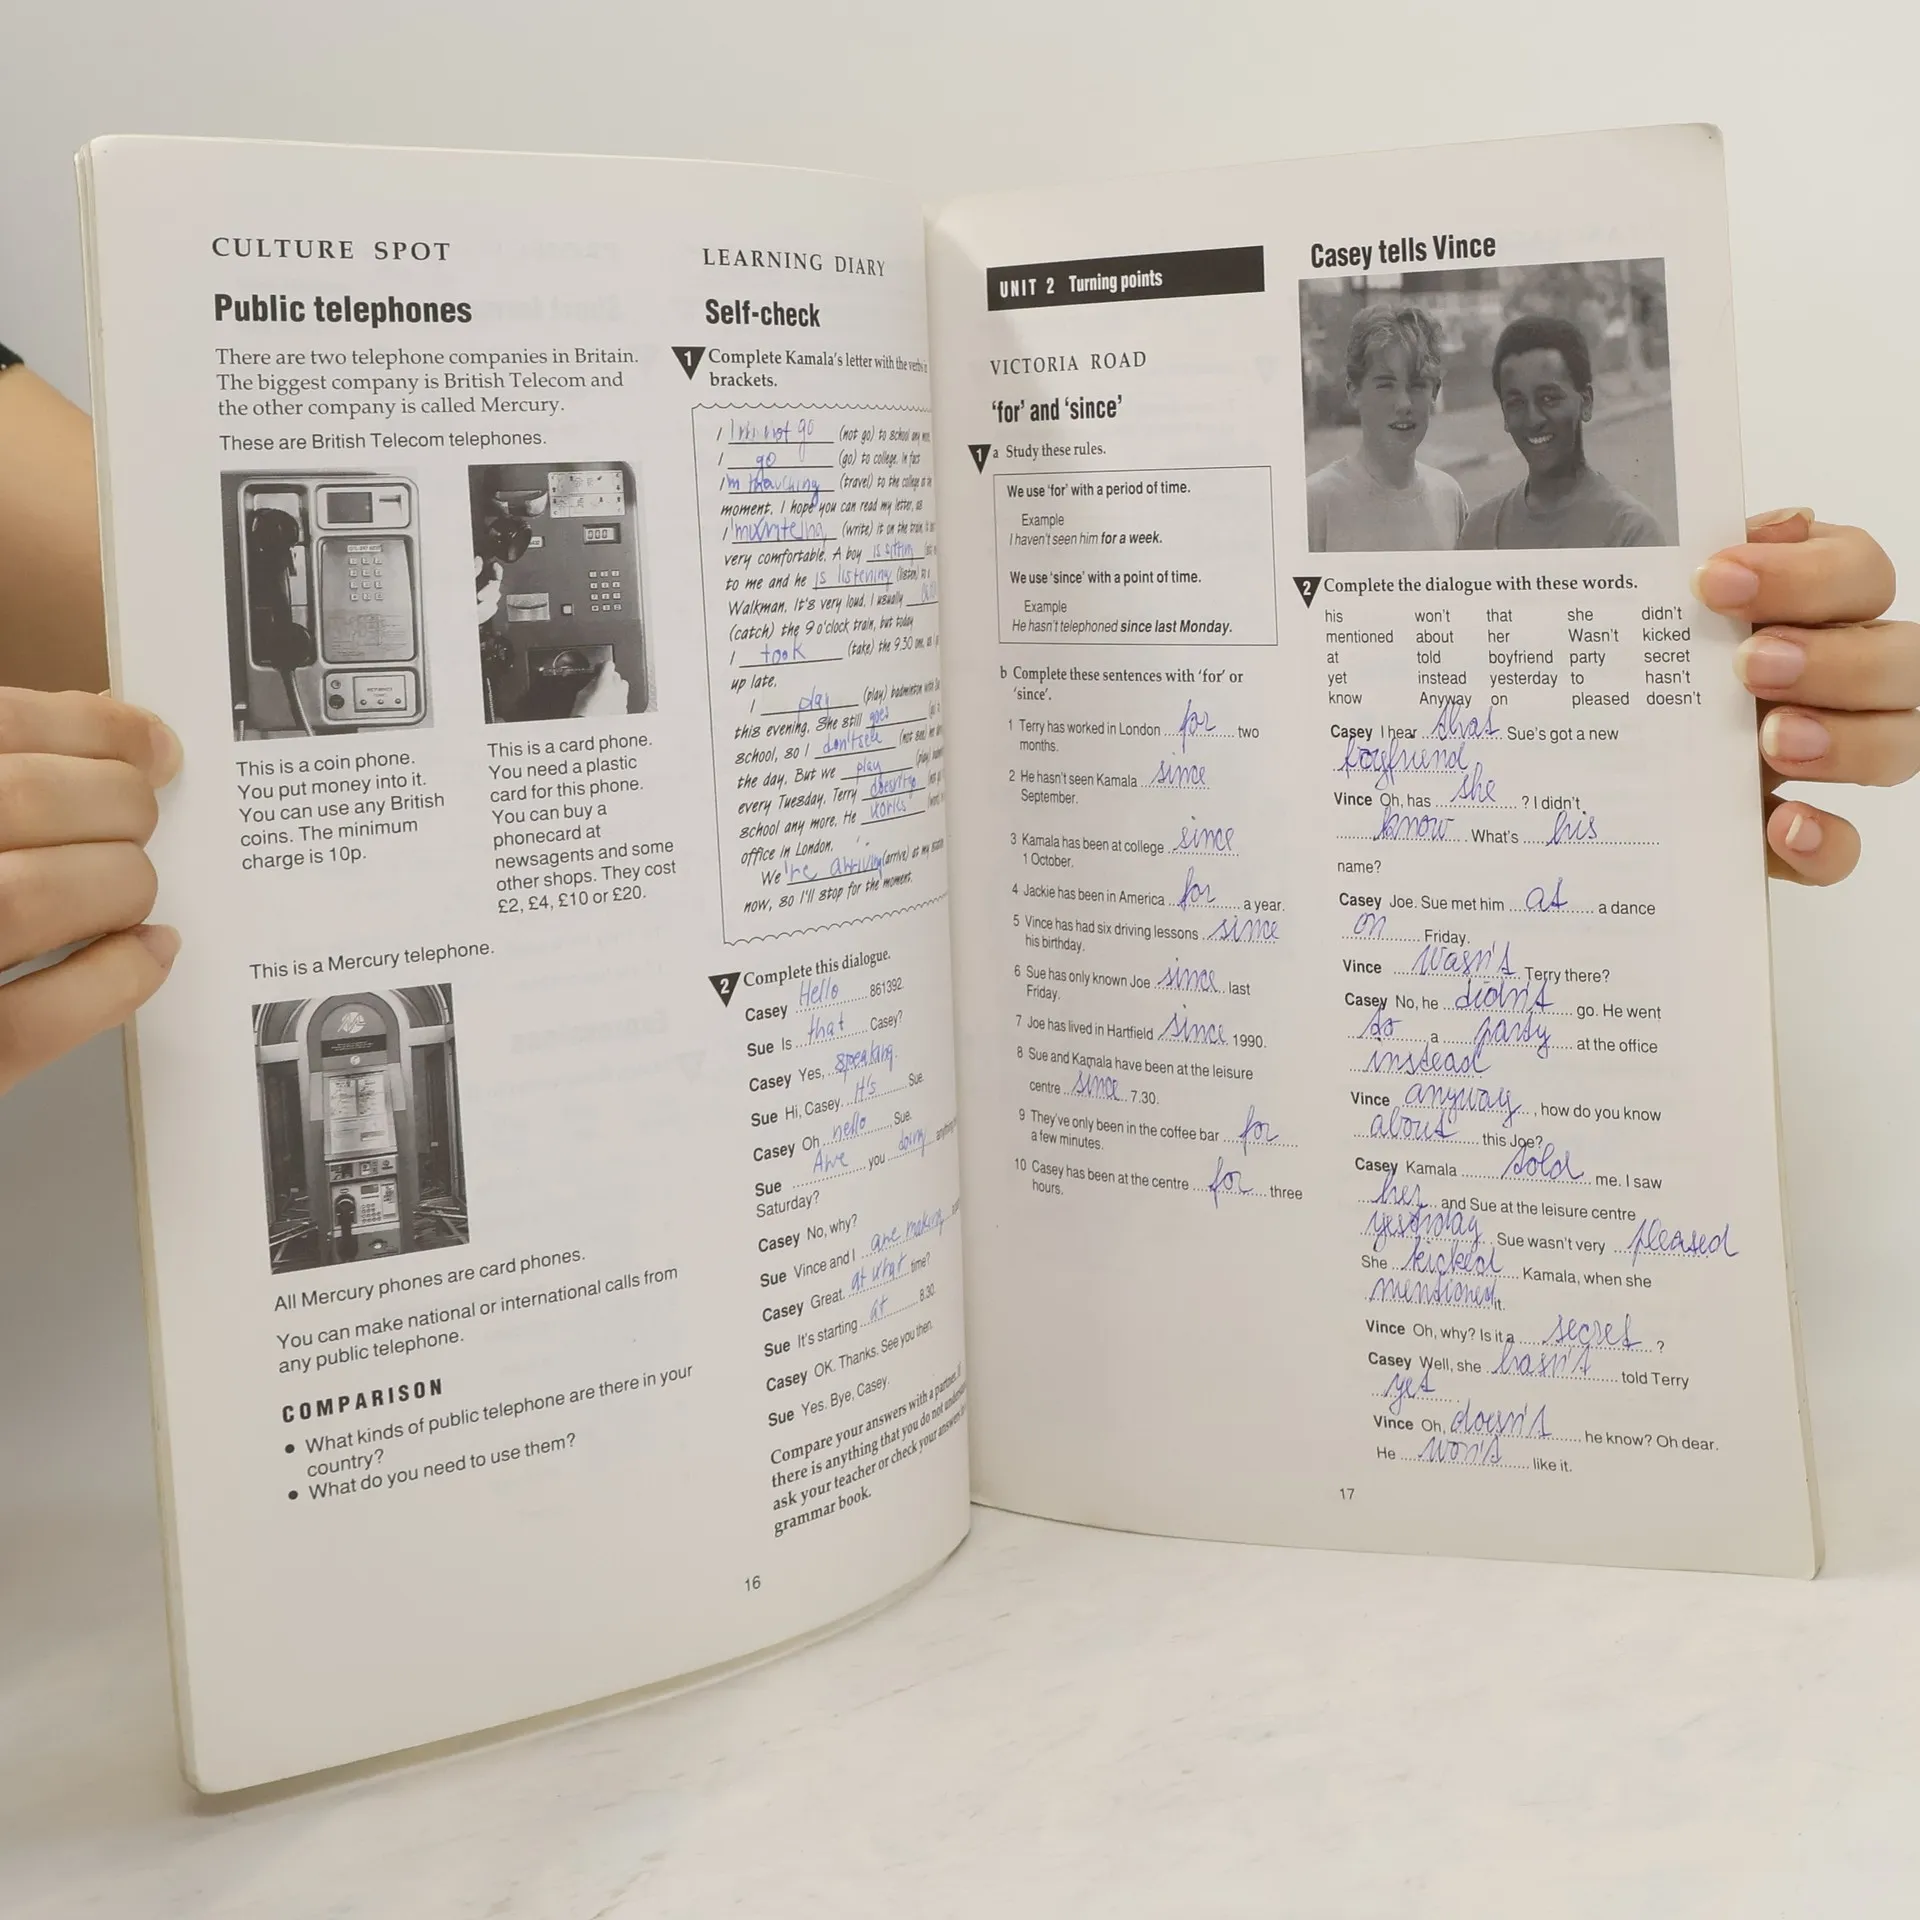 CULTURE SPOT
Public telephones
There are two telephone companies in Britain.
The biggest company is British Telecom and
the other company is called Mercury.
These are British Telecom telephones.
This is a coin phone.
You put money into it.
You can use any British
coins. The minimum
charge is 10p.
This is a card phone.
You need a plastic
card for this phone.
You can buy a
phonecard at
newsagents and some
other shops. They cost
£2, £4, £10 or £20.
This is a Mercury telephone.
All Mercury phones are card phones.
You can make national or international calls from
any public telephone.
COMPARISON
• What kinds of public telephone are there in your
country?
• What do you need to use them?
LEARNING DIARY
Self-check
1 Complete Kamala's letter with the verbs
brackets.
I not go (not go) to school any
I go (go) to college. In fact
I'm (travel) to the college at the
moment. I hope you can read my letter, as
I (write) it on the train.
very comfortable. A boy is sitting
to me and he is listening (listen) to a
Walkman. It's very loud. I usually
(catch) the 9 o'clock train, but today
I took (take) the 9.30 one, as I
up late.
I play (play) badminton with
this evening. She still goes
school, so I don't see (not see) her
the day. But we play (play)
every Tuesday. Terry
school any more. He works
office in London.
We 're arriving (arrive) at my station
now, so I'll stop for the moment.
2 Complete this dialogue.
Casey Hello 861392.
Sue Is that Casey?
Casey Yes, speaking.
Sue Hi, Casey. It's Sue.
Casey Oh hello, Sue.
Sue Are you doing
Saturday?
Casey No, why?
Sue Vince and I are making
Casey Great. at what time?
Sue It's starting at 8.30.
Casey OK. Thanks. See you then.
Sue Yes. Bye, Casey.
Compare your answers with a partner. If
there is anything that you do not understand
ask your teacher or check your answers
grammar book.
16
UNIT 2 Turning points
VICTORIA ROAD
'for' and 'since'
1 a Study these rules.
We use 'for' with a period of time.
Example
I haven't seen him for a week.
We use 'since' with a point of time.
Example
He hasn't telephoned since last Monday.
b Complete these sentences with 'for' or
'since'.
1 Terry has worked in London for two
months.
2 He hasn't seen Kamala since
September.
3 Kamala has been at college since
1 October.
4 Jackie has been in America for a year.
5 Vince has had six driving lessons since
his birthday.
6 Sue has only known Joe since last
Friday.
7 Joe has lived in Hartfield since 1990.
8 Sue and Kamala have been at the leisure
centre since 7.30.
9 They've only been in the coffee bar for
a few minutes.
10 Casey has been at the centre for three
hours.
Casey tells Vince
2 Complete the dialogue with these words.
his won't that she didn't
mentioned about her Wasn't kicked
at told boyfriend party secret
yet instead yesterday to hasn't
know Anyway on pleased doesn't
Casey I hear that Sue's got a new
boyfriend
Vince Oh, has she ? I didn't
know. What's his
name?
Casey Joe. Sue met him at a dance
on Friday.
Vince Wasn't Terry there?
Casey No, he didn't go. He went
to a party at the office
instead
Vince anyway, how do you know
about this Joe?
Casey Kamala told me. I saw
her and Sue at the leisure centre
yesterday. Sue wasn't very pleased
She kicked Kamala, when she
mentioned it.
Vince Oh, why? Is it a secret ?
Casey Well, she hasn't told Terry
yet.
Vince Oh, doesn't he know? Oh dear.
He won't like it.
17